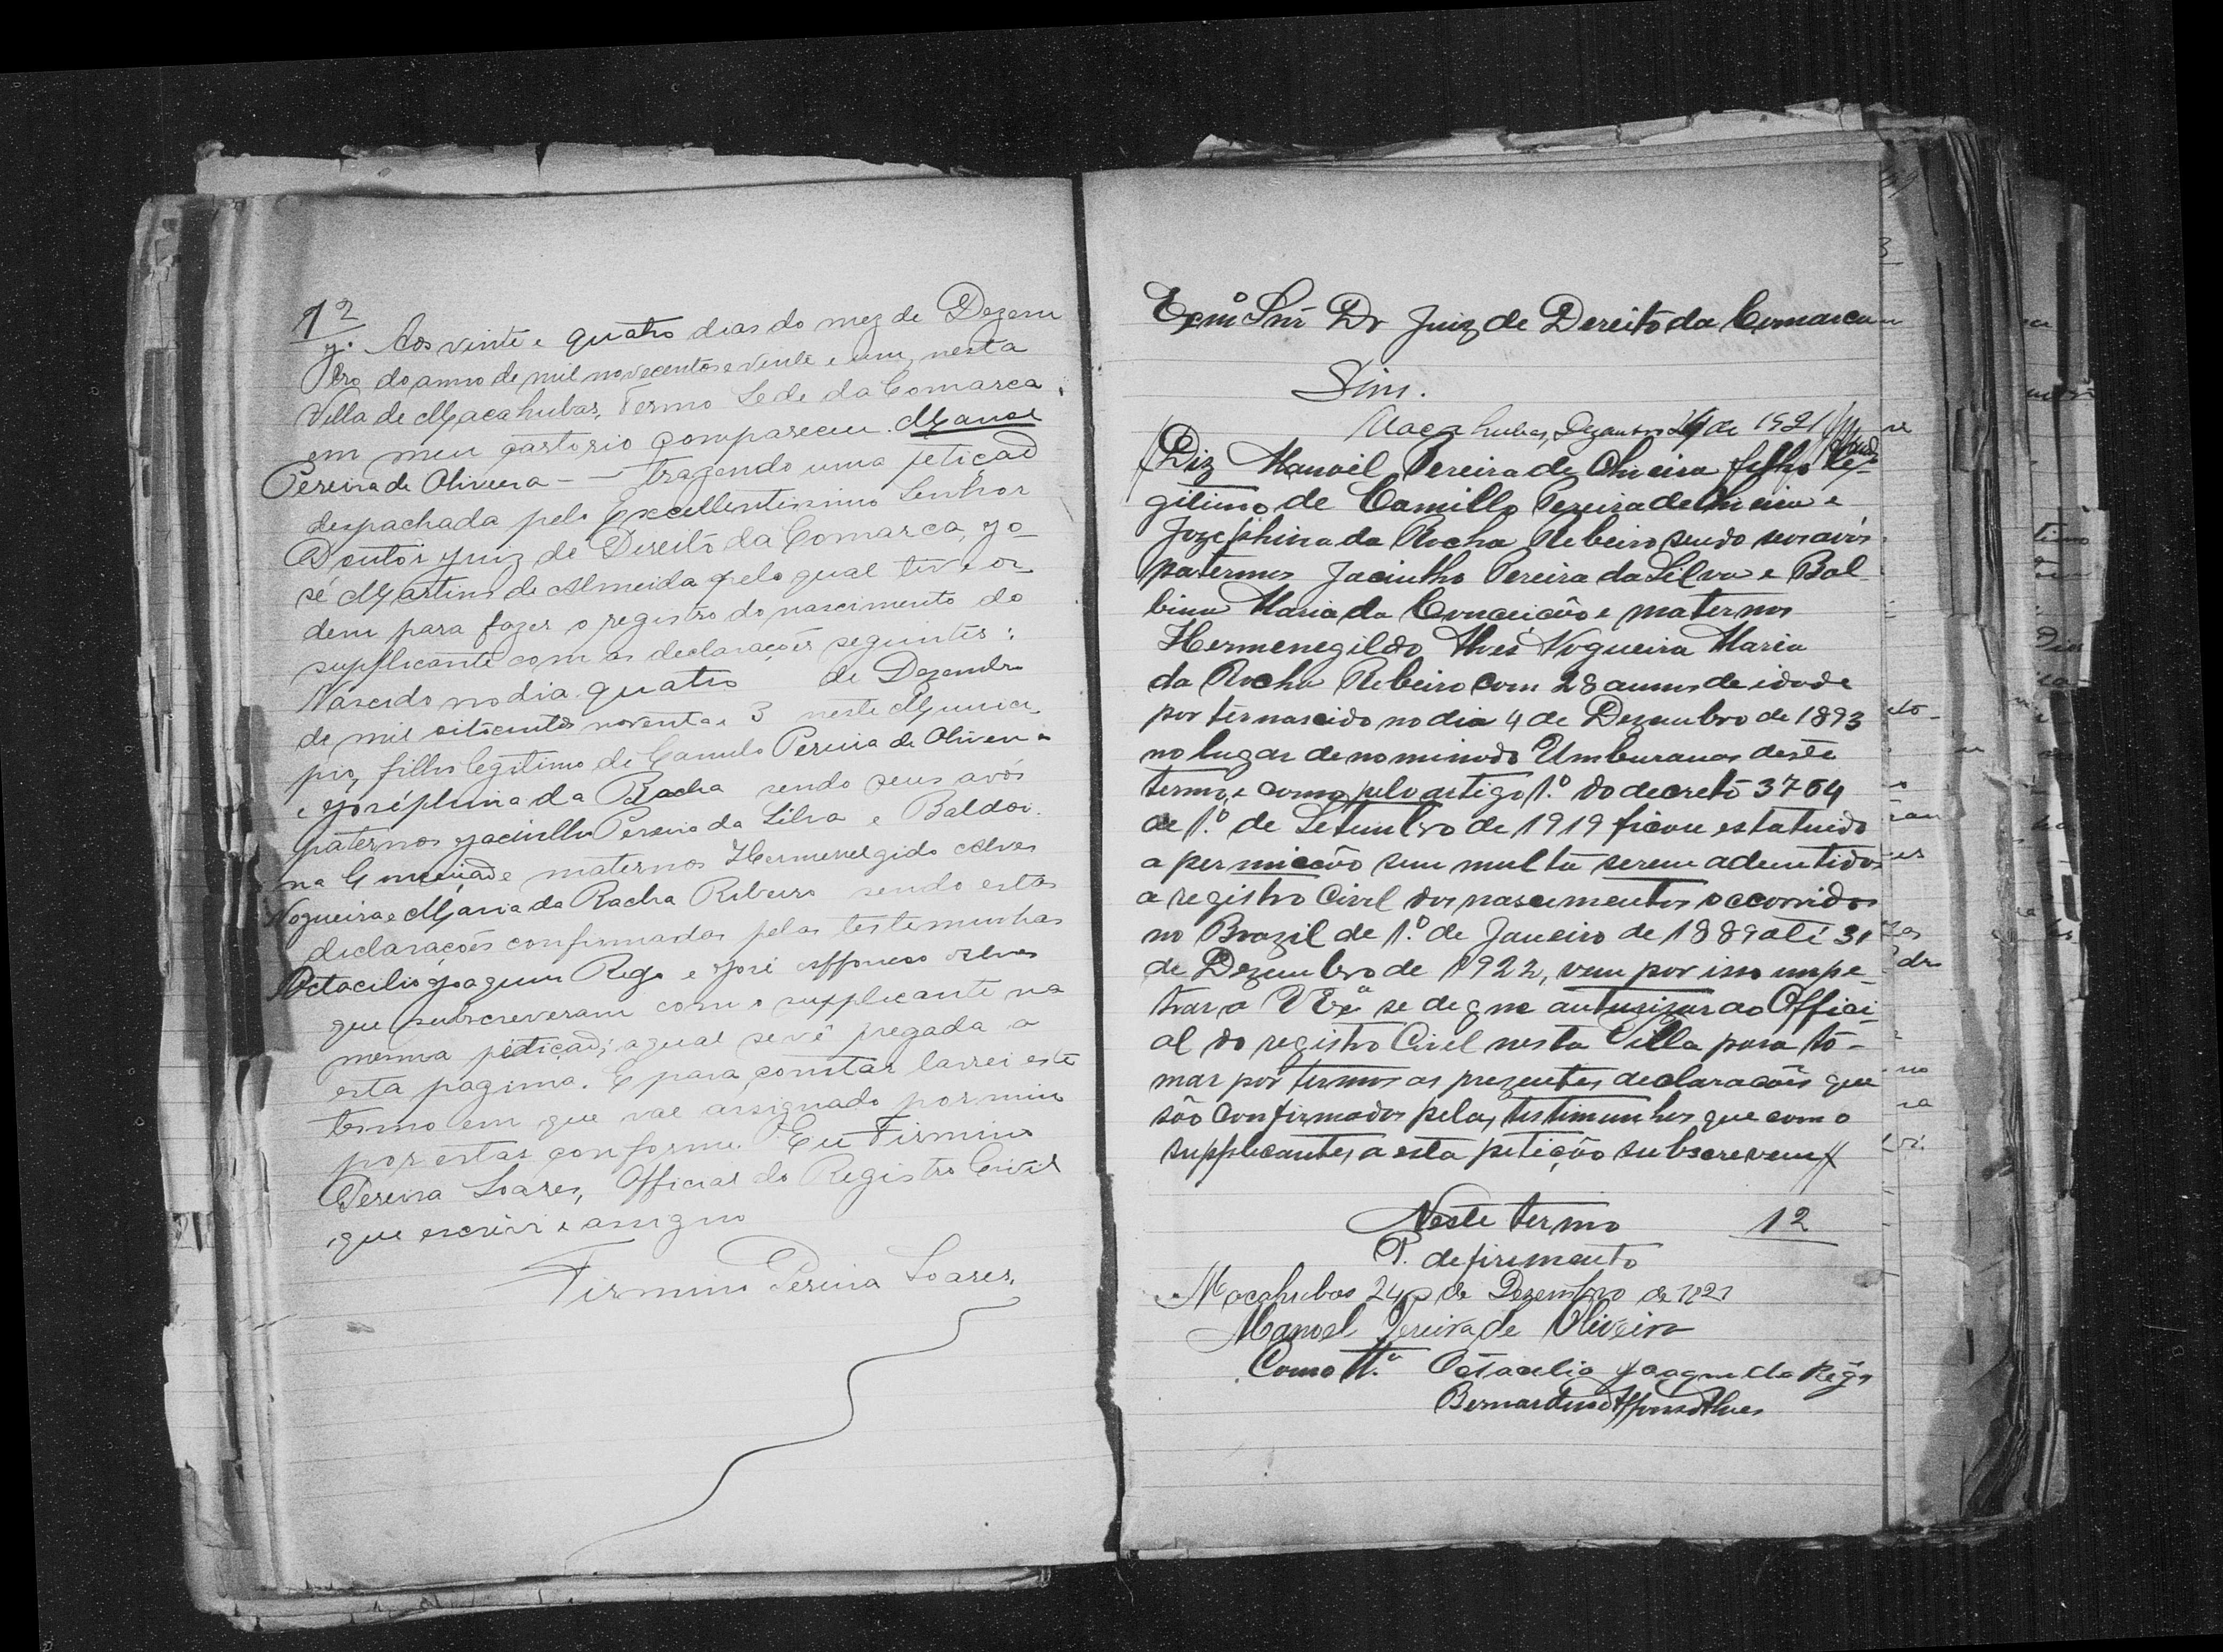 12
Aos vinte e quatro dias do mez de Dezem
bro do anno de mil novecentos e vinte e um, nesta
Villa de Macahubas, Termo Sede da Comarca
em meu cartorio compareceu Manoel
Pereira de Oliveira — trazendo uma petição
despachada pelo Excellentissimo Senhor
Doutor Juiz de Direito da Comarca, Jo-
sé Martins de Almeida pelo qual tive or
dem para fazer o registro do nascimento do
supplicante com as declarações seguintes:
Nascido no dia quatro de Dezembro
de mil oitocentos noventa e 3 neste Munici
pio, filho legitimo de Camilo Pereira de Oliveira
e Joséphina da Rocha sendo seus avós
paternos Jacintho Pereira da Silva e Baldoi
na Conceição e maternos Hermenelgido Alves
Nogueira e Maria da Rocha Ribeiro sendo estas
declarações confirmadas pelas testemunhas
Octacilio Joaquim Rego e José Affonso Alves
que subscreveram com o supplicante na
mesma petição; a qual se vê pregada a
esta pagina. E para constar lavrei este
termo em que vae assignado por mim
por estar conforme. Eu Firmino
Pereira Soares, Official do Registro Civil
que escrevi e assigno
Firmino Pereira Soares.
Exmº Snr Dr Juiz de Dereito da Comarca
Sim.
Macahubas, Dezembro 24 de 1921
Diz Manoel Pereira de Oliveira filho le-
gitimo de Camillo Pereira de Oliveira e
Jozephina da Rocha Ribeiro sendo seus avós
paternos Jacintho Pereira da Silva e Bal
bina Maria da Conceição e maternos
Hermenegildo Alves Nogueira Maria
da Rocha Ribeiro com 28 annos de idade
por ter nascido no dia 4 de Dezembro de 1893
no lugar denominado Umburanas deste
termo, e como pelo artigo 1.º do decreto 3764
de 1.º de Setembro de 1919 ficou estatuido
a permicão sem multa serem ademtidos
a registro Civil dos nascimentos occorridos
no Brazil de 1.º de Janeiro de 1889 até 31
de Dezembro de 1922, vem por isso impe-
trar a V Exª se digne autorizar ao Offici-
al do registro Civil nesta Villa para to-
mar por termos as prezentes declaracões que
são confirmados pelas testimunhas que com o
supplicantes a esta petição subscrevem
Neste termo 12
P. defirimento
Macahubas 24 de Dezembro de 1921
Manoel Pereira de Oliveira
Como tt.ª Octacilio Joaquim do Rêgo
Bernardino Affonso Alves